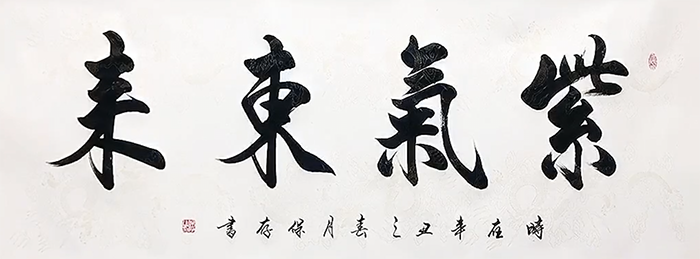 紫氣東来
時在辛丑之春月保存書